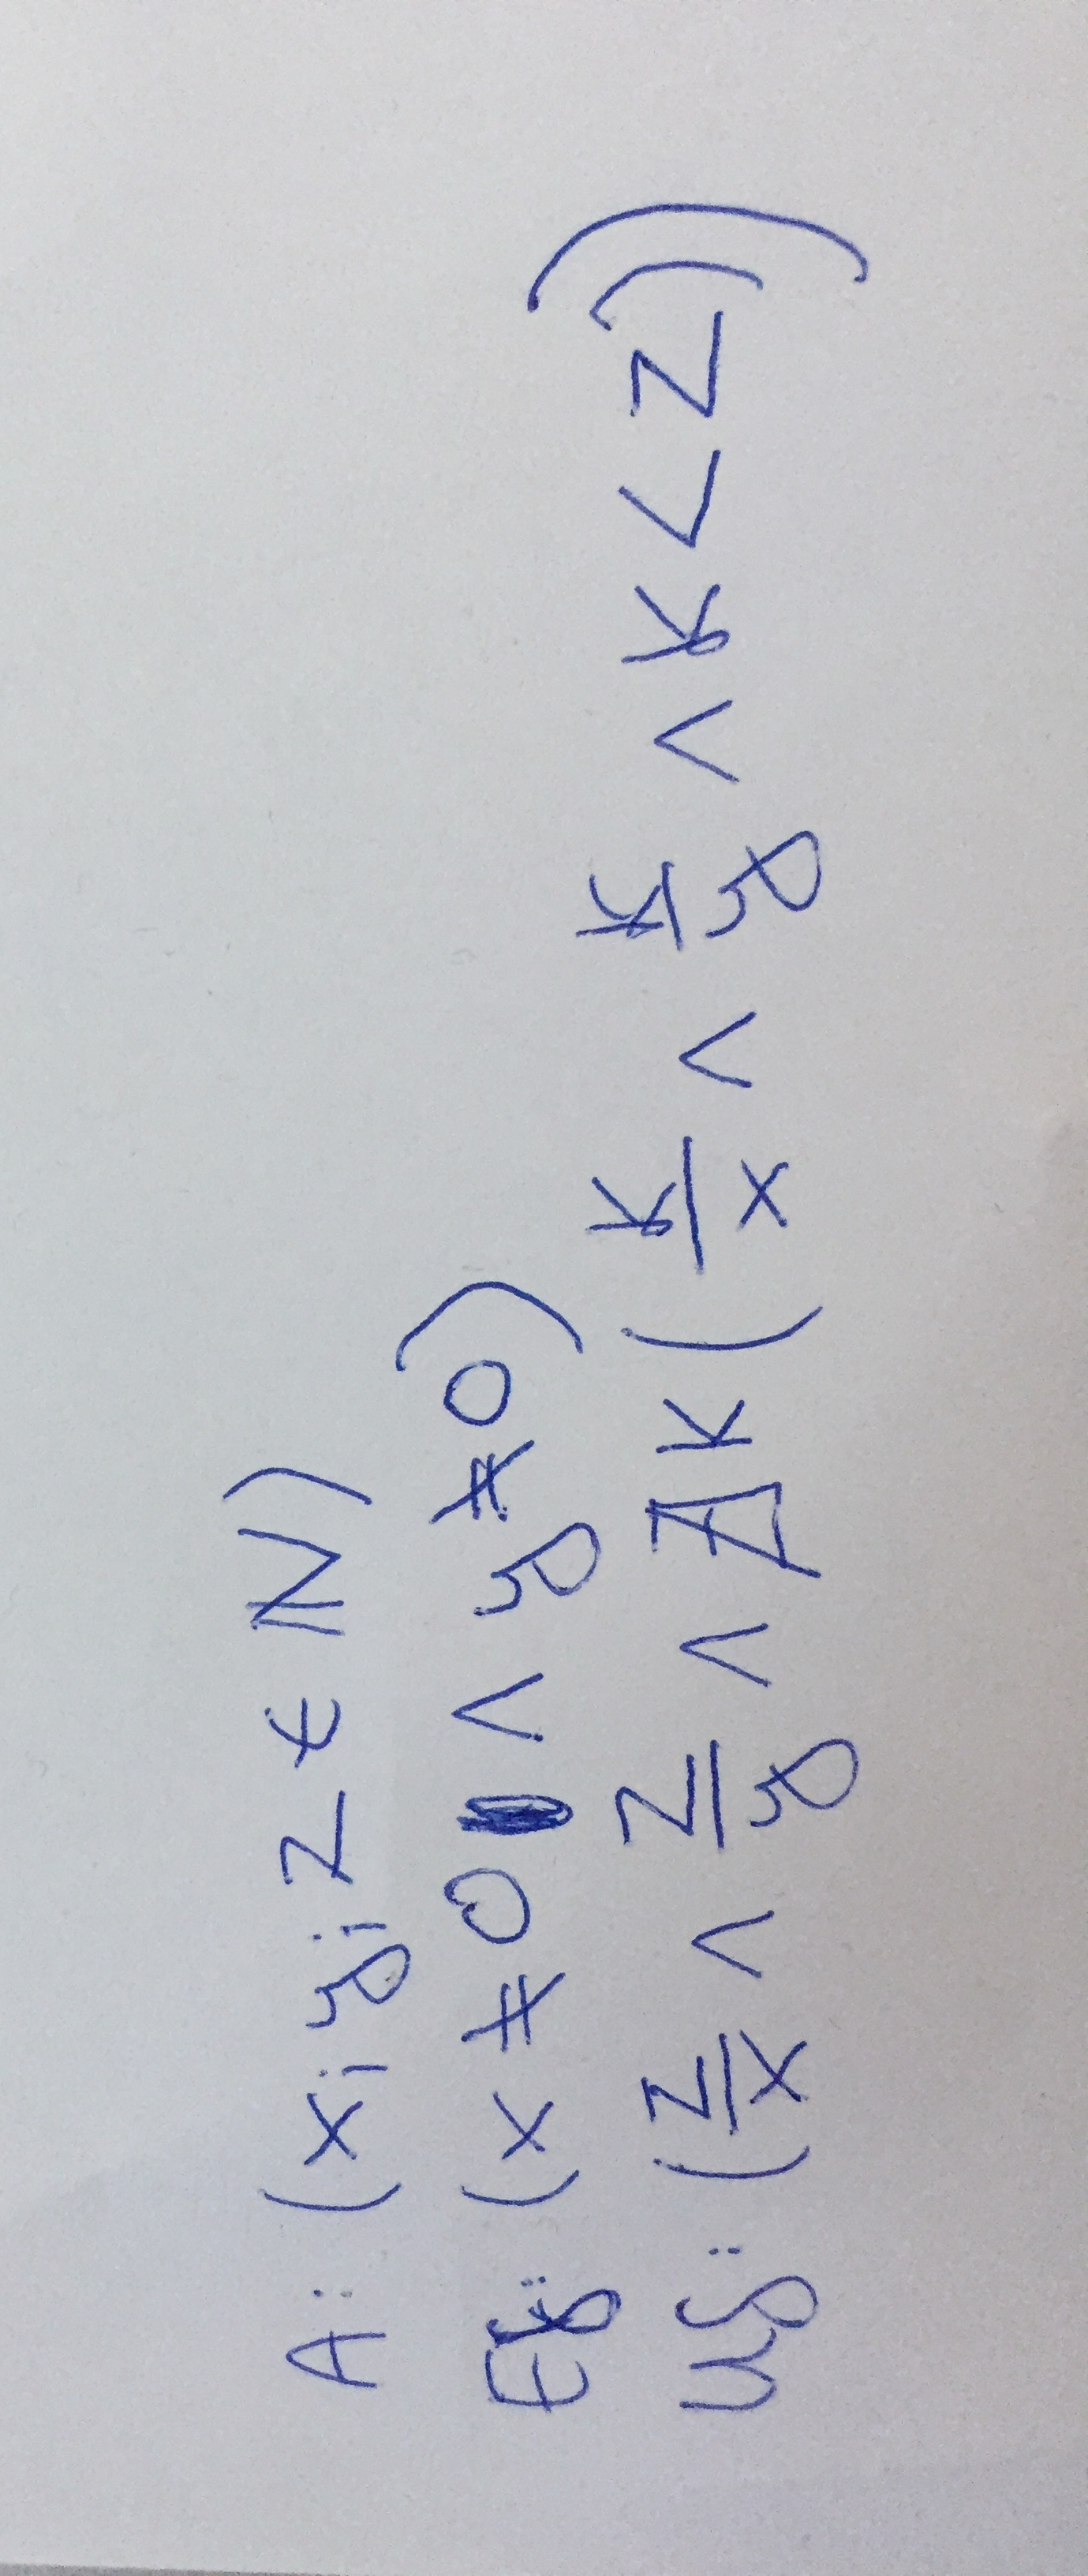 A: (x; y; z ∈ ℕ)
Ef: (x ≠ 0 ∧ y ≠ 0)
Uf: (z/x ∧ z/y ∧ ∄k (k/x ∧ k/y ∧ k < z))